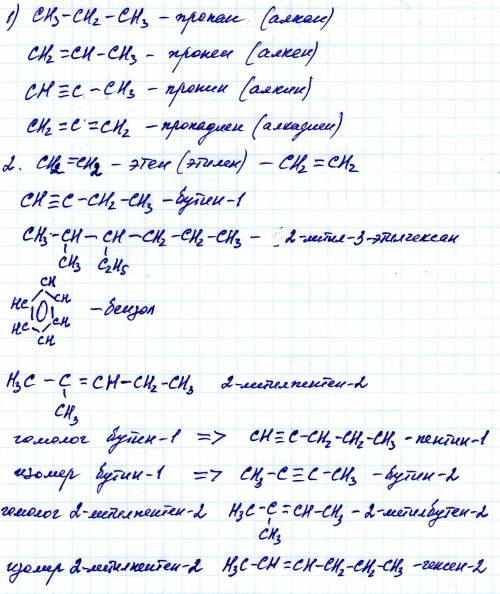 1) CH₃-CH₂-CH₃ - пропан (алкан)
CH₂=CH-CH₃ - пропен (алкен)
CH≡C-CH₃ - пропин (алкин)
CH₂=C=CH₂ - пропадиен (алкадиен)
2. CH₂=CH₂ - этен (этилен) - CH₂=CH₂
CH≡C-CH₂-CH₃ - бутин-1
CH₃-CH-CH-CH₂-CH₂-CH₃ - 2-метил-3-этилгексан
CH₃ C₂H₅
CH
HC CH
HC CH
CH
- бензол
H₃C-C=CH-CH₂-CH₃ 2-метилпентен-2
CH₃
гомолог бутин-1 => CH≡C-CH₂-CH₂-CH₃ - пентин-1
изомер бутин-1 => CH₃-C≡C-CH₃ - бутин-2
гомолог 2-метилпентен-2 H₃C-C=CH-CH₃ - 2-метилбутен-2
CH₃
изомер 2-метилпентен-2 H₃C-CH=CH-CH₂-CH₂-CH₃ - гексен-2